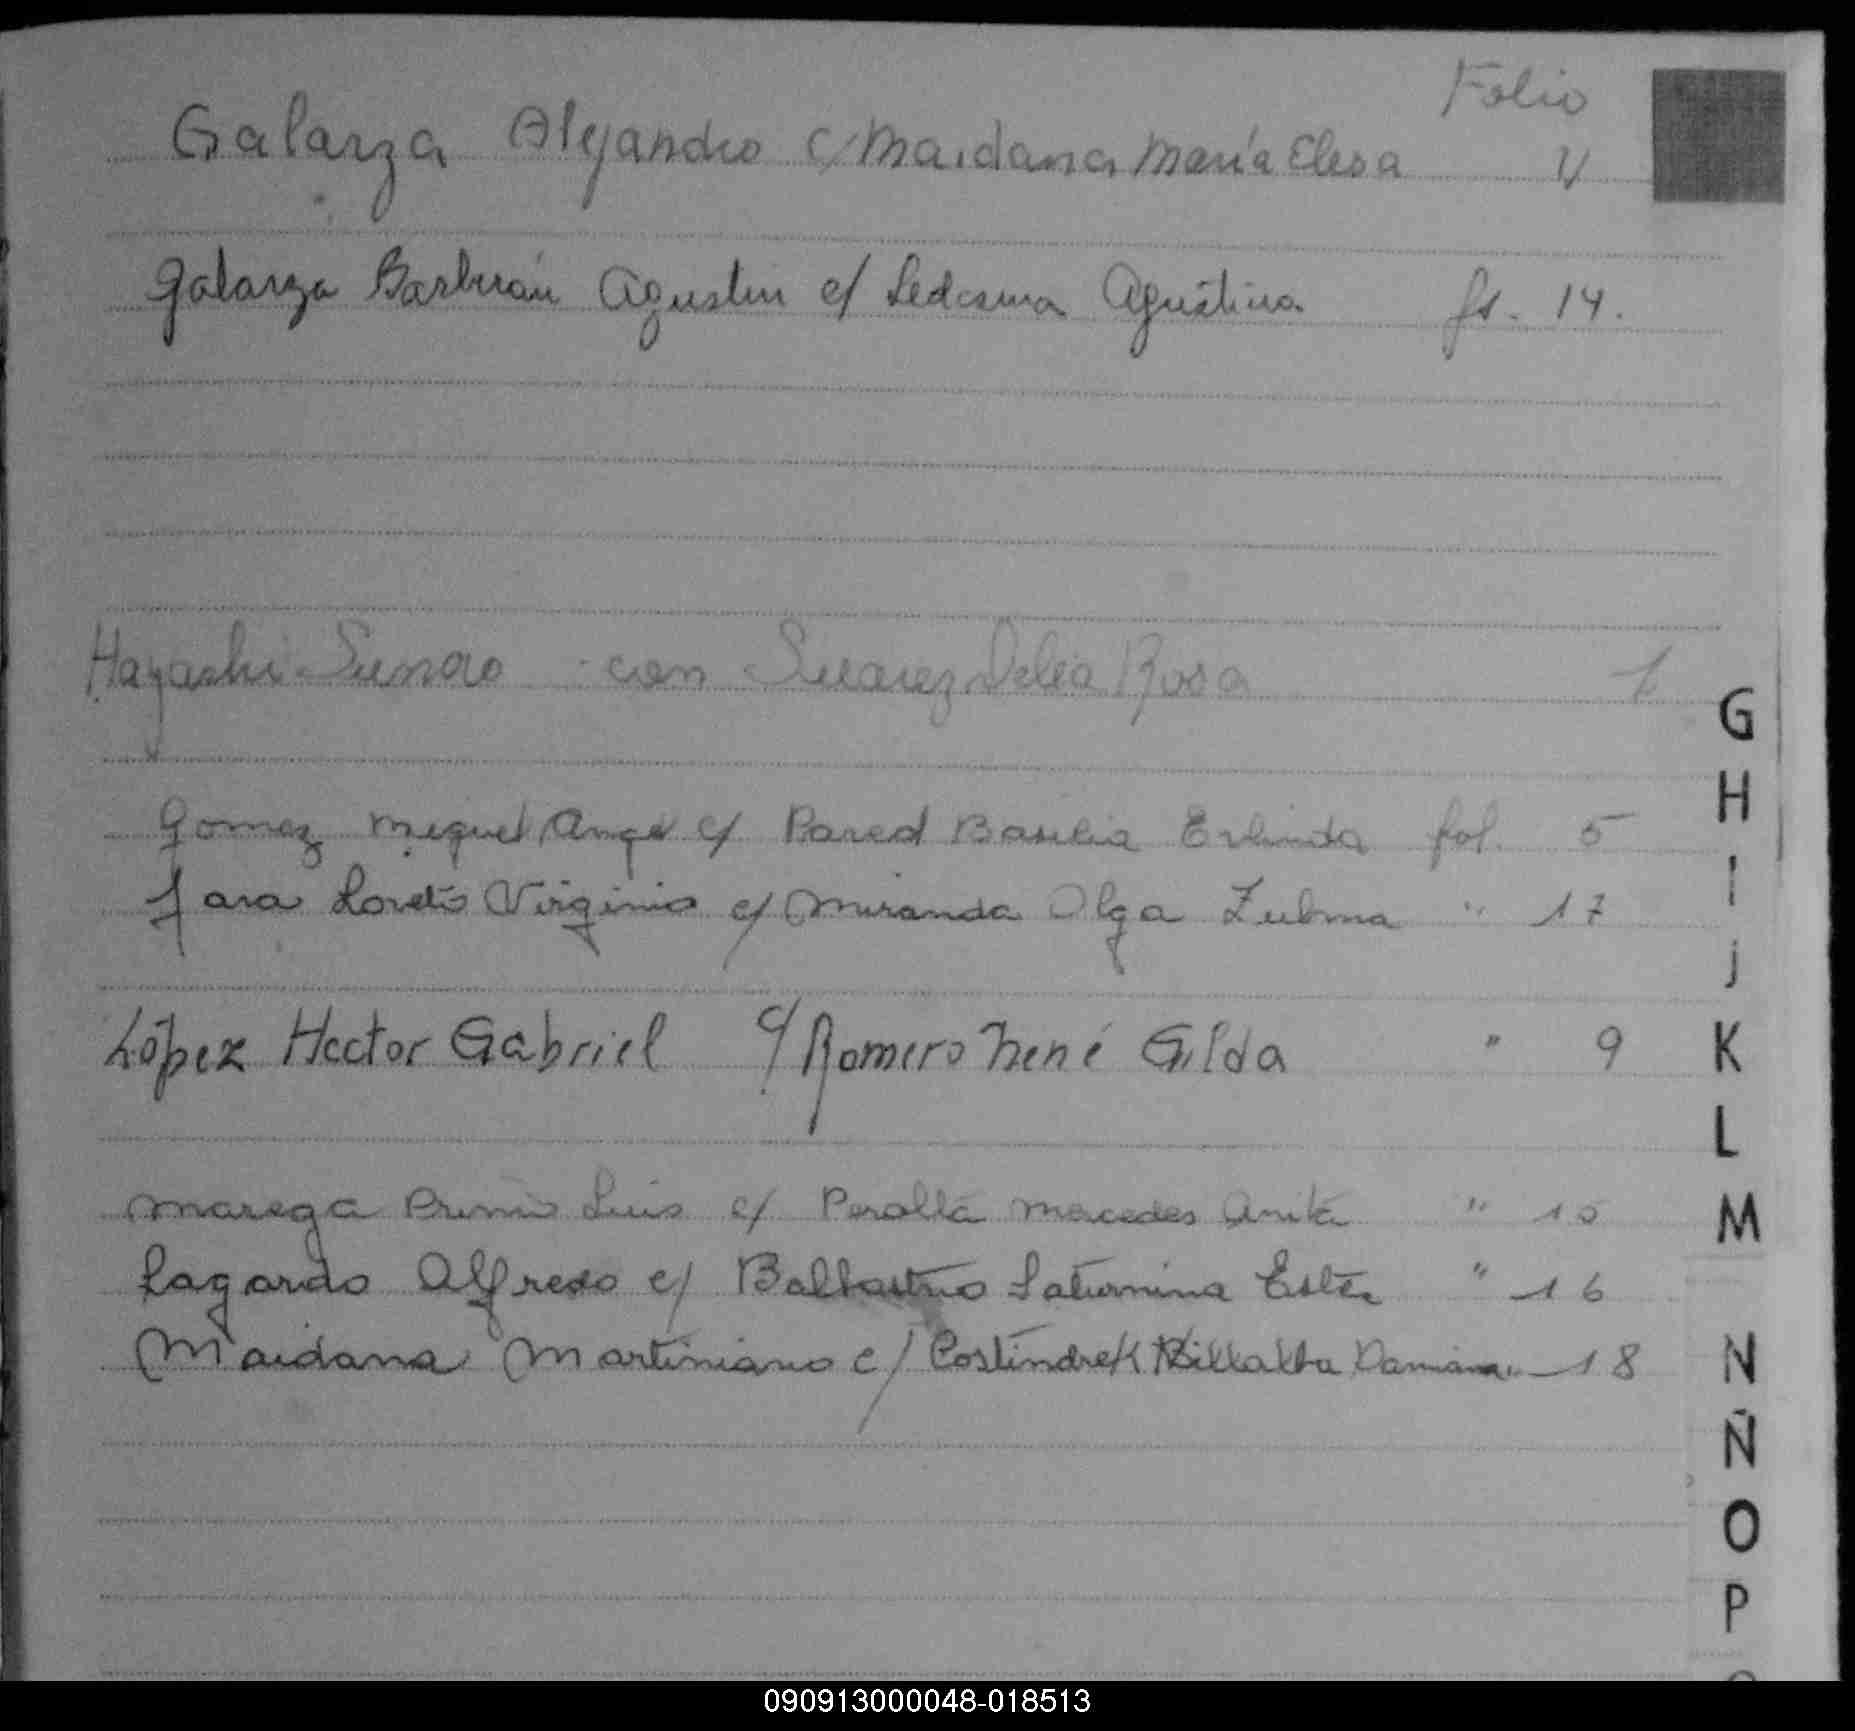 Folio
Galarza Alejandro c/ Maidana María Elesa V
Galarza Barberán Agustin c/ Ledesma Agustina fs. 14.
Hayashi Sunao con Suarez Delia Rosa
G
H
Gomez Miguel Angel c/ Pared Basilia Erlinda fol. 5
I
Jara Loreto Virginio c/ Miranda Olga Zulma " 17
J
López Hector Gabriel c/ Romero Nené Gilda " 9
K
L
Marega Primo Luis c/ Peralta Mercedes Anita "
M
Lagardo Alfredo c/ Balbastro Saturnina Ester " 16
Maidana Martiniano c/ Villalba Damiana " 18
N
Ñ
O
P
090913000048-018513